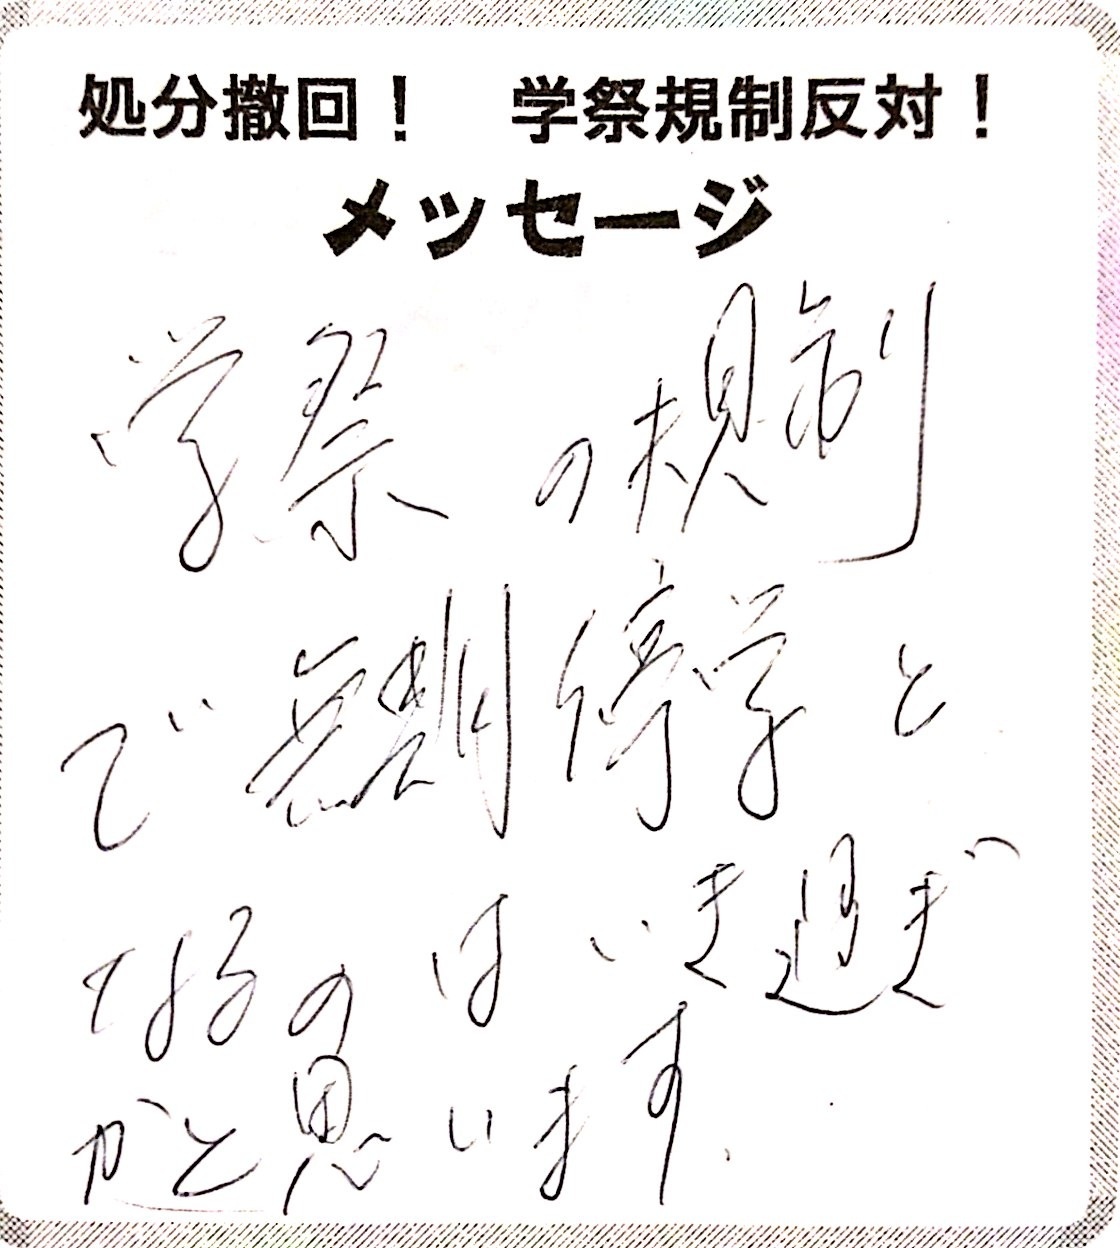 処分撤回！　学祭規制反対！
メッセージ
学祭の規制
で無期停学と
なるのはいき過ぎ
かと思います.